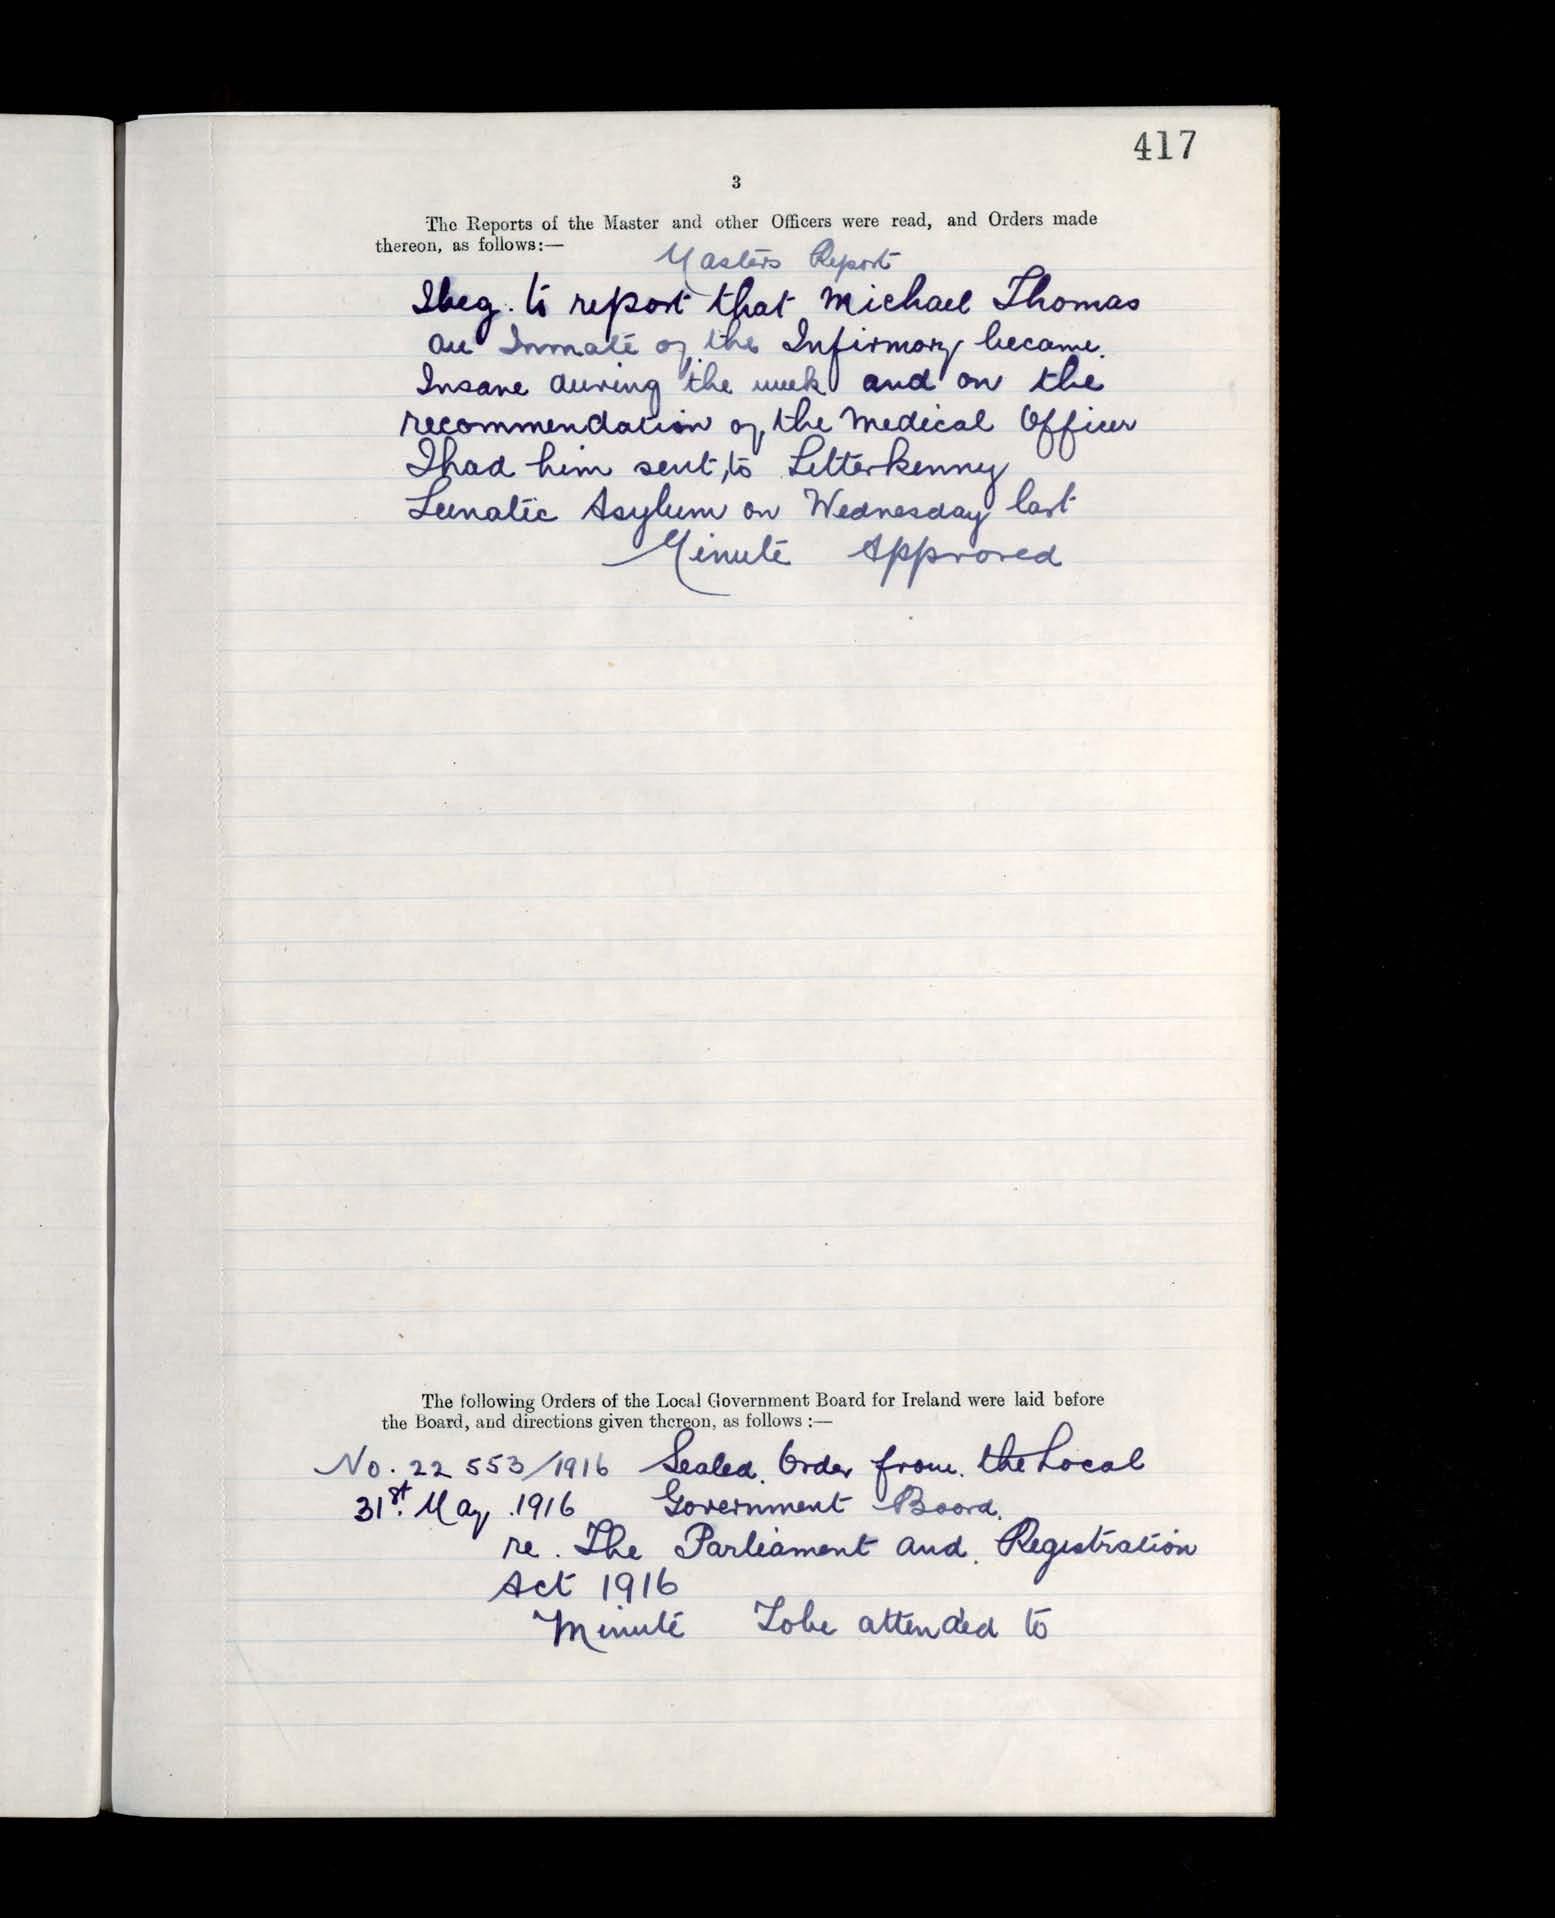 417
3
The Reports of the Master and other Officers were read, and Orders made
thereon, as follows:—
Masters Report
I beg to report that Michael Thomas
an Inmate of the Infirmary became
Insane during the week and on the
recommendation of the Medical Officer
I had him sent to Letterkenny
Lunatic Asylum on Wednesday last
Minute Approved
The following Orders of the Local Government Board for Ireland were laid before
the Board, and directions given thereon, as follows :—
No. 22 553/1916 Sealed Order from the Local
31st. May 1916 Government Board.
re. The Parliament and Registration
Act 1916
Minute To be attended to